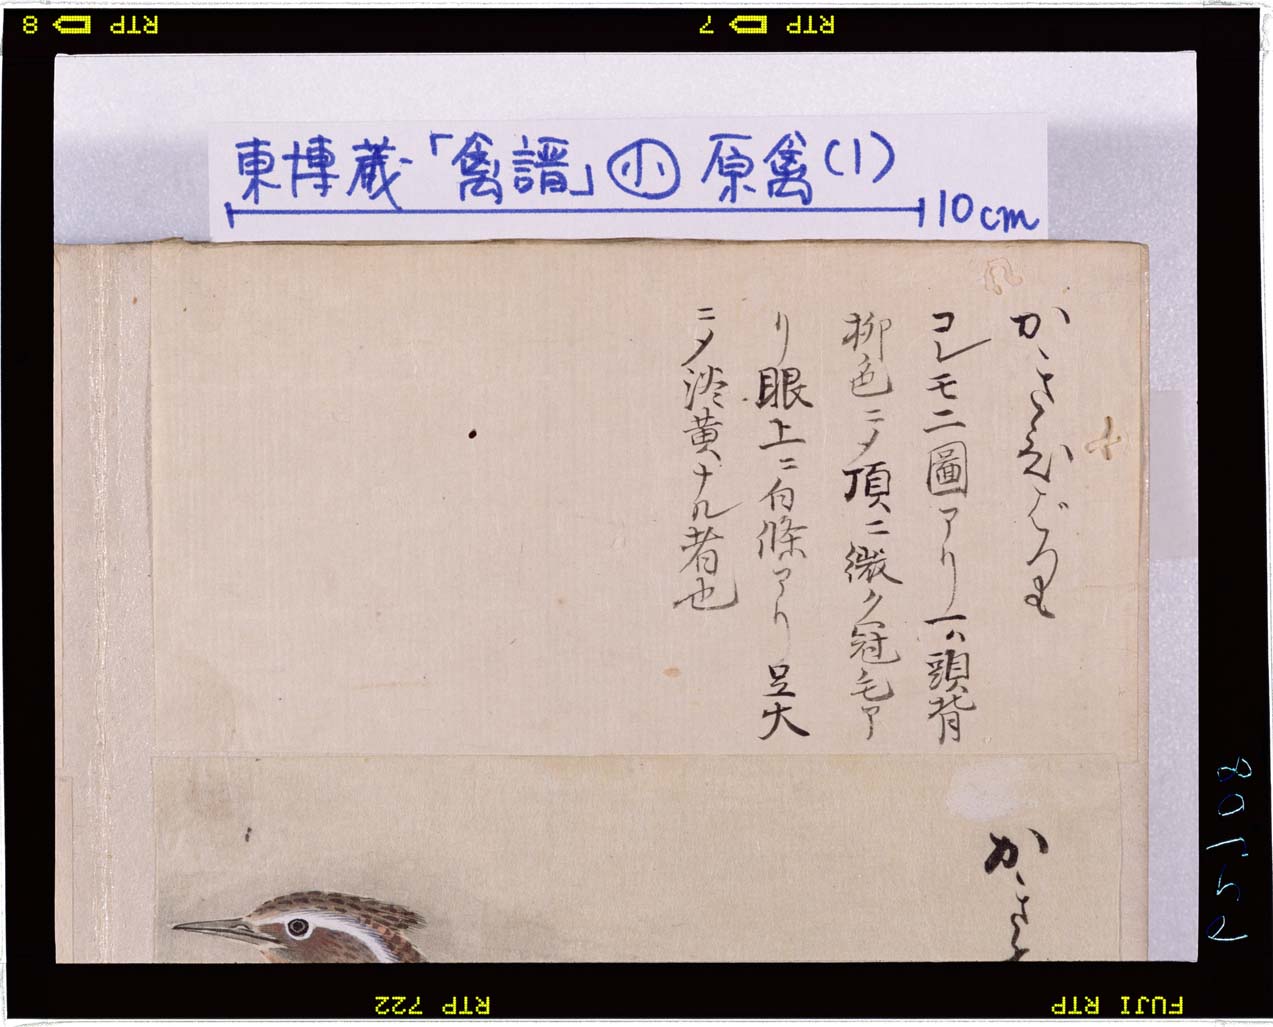 8 RTP 7 RTP
東博蔵「禽譜」小 原禽(1)
10cm
かゝさゑびばり
コレモ二圖アリ一ハ頭背
柳色ニメ頂ニ微ク冠毛ア
リ眼上ニ白條アリ足大
ニメ淡黄ナル者也
かゝさ
RTP 722 FUJI RTP